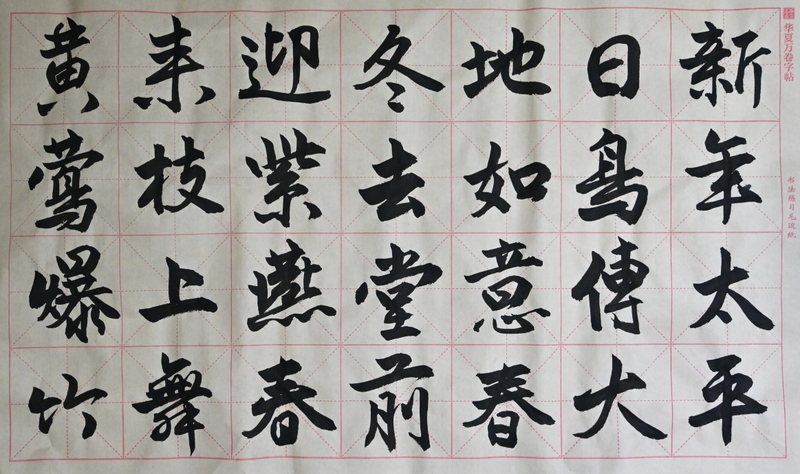 华夏万卷字帖
书法练习毛边纸
新年太平
日鳥傳大
地如意春
冬去堂前
迎紫燕春
来枝上舞
黄莺爆竹